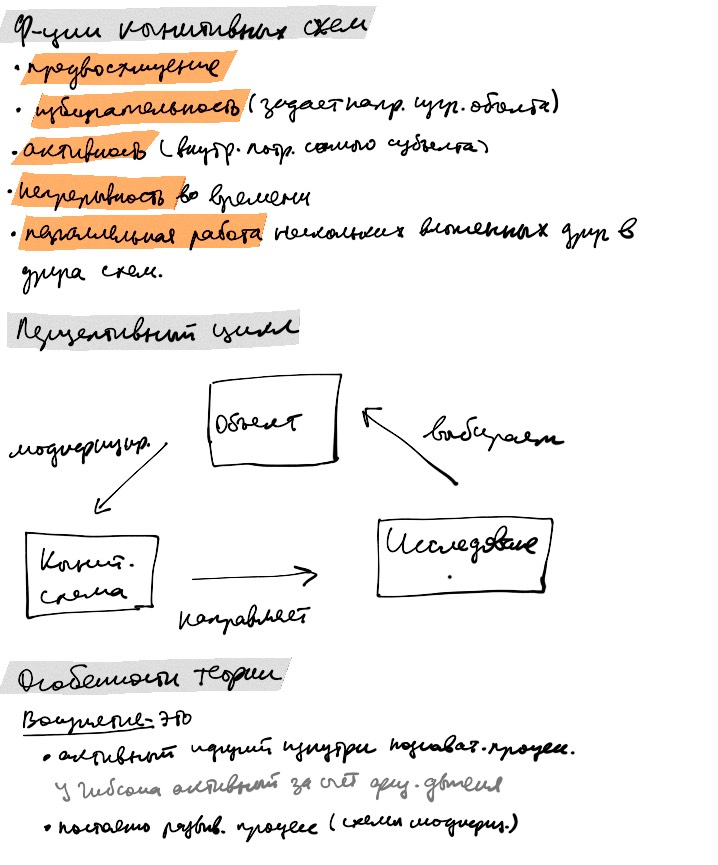 Ф-ции когнитивных схем
• предвосхищение
• избирательность (задает напр. изуч. объекта)
• активность (внутр. потр. самого субъекта)
• непрерывность во времени
• параллельная работа нескольких вложенных друг в
друга схем.
Перцептивный цикл
Объект
модифицир.
выбирает
Когнит.
схема
Исследование
направляет
Особенности теории
Восприятие - это
• активный идущий изнутри познават. процесс.
У Гибсона активный за счёт движения
• постоянно развив. процесс (схемы модифиц.)